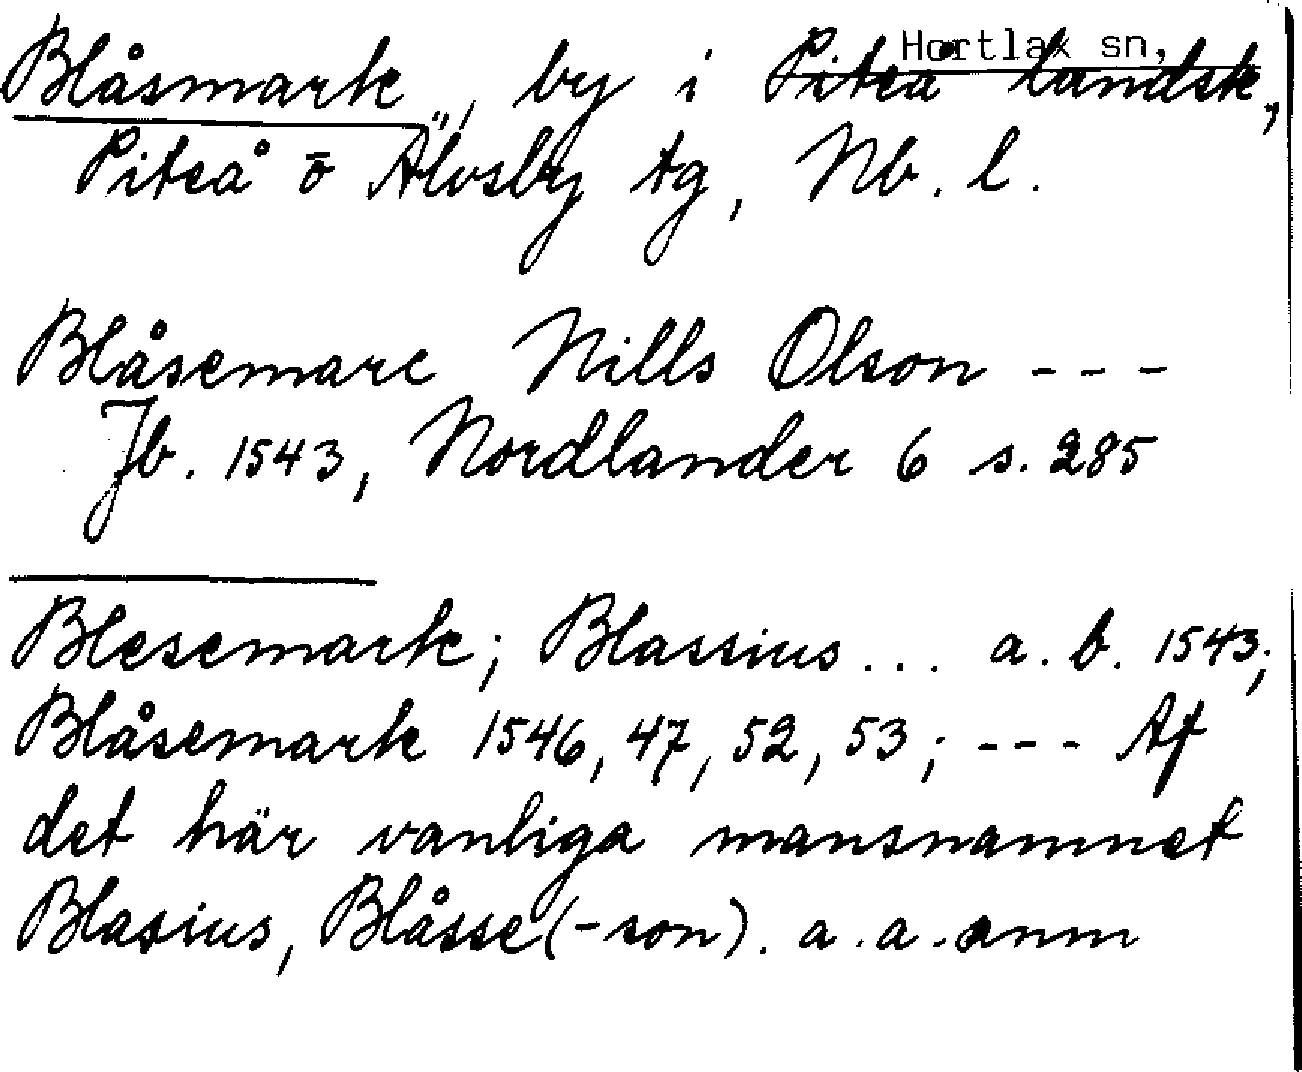 Hortlax sn,
Blåsmark, by i Piteå landsk,
Piteå o Älvsby tg, Nb. l.
Blåsemarc Nills Olson ---
Jb. 1543, Nordlander 6 s. 285
Blesemark; Blassius... a. b. 1543;
Blåsemark 1546, 47, 52, 53; --- Af
det här vanliga mansnamnet
Blasius, Blåsse (-son). a. a. anm